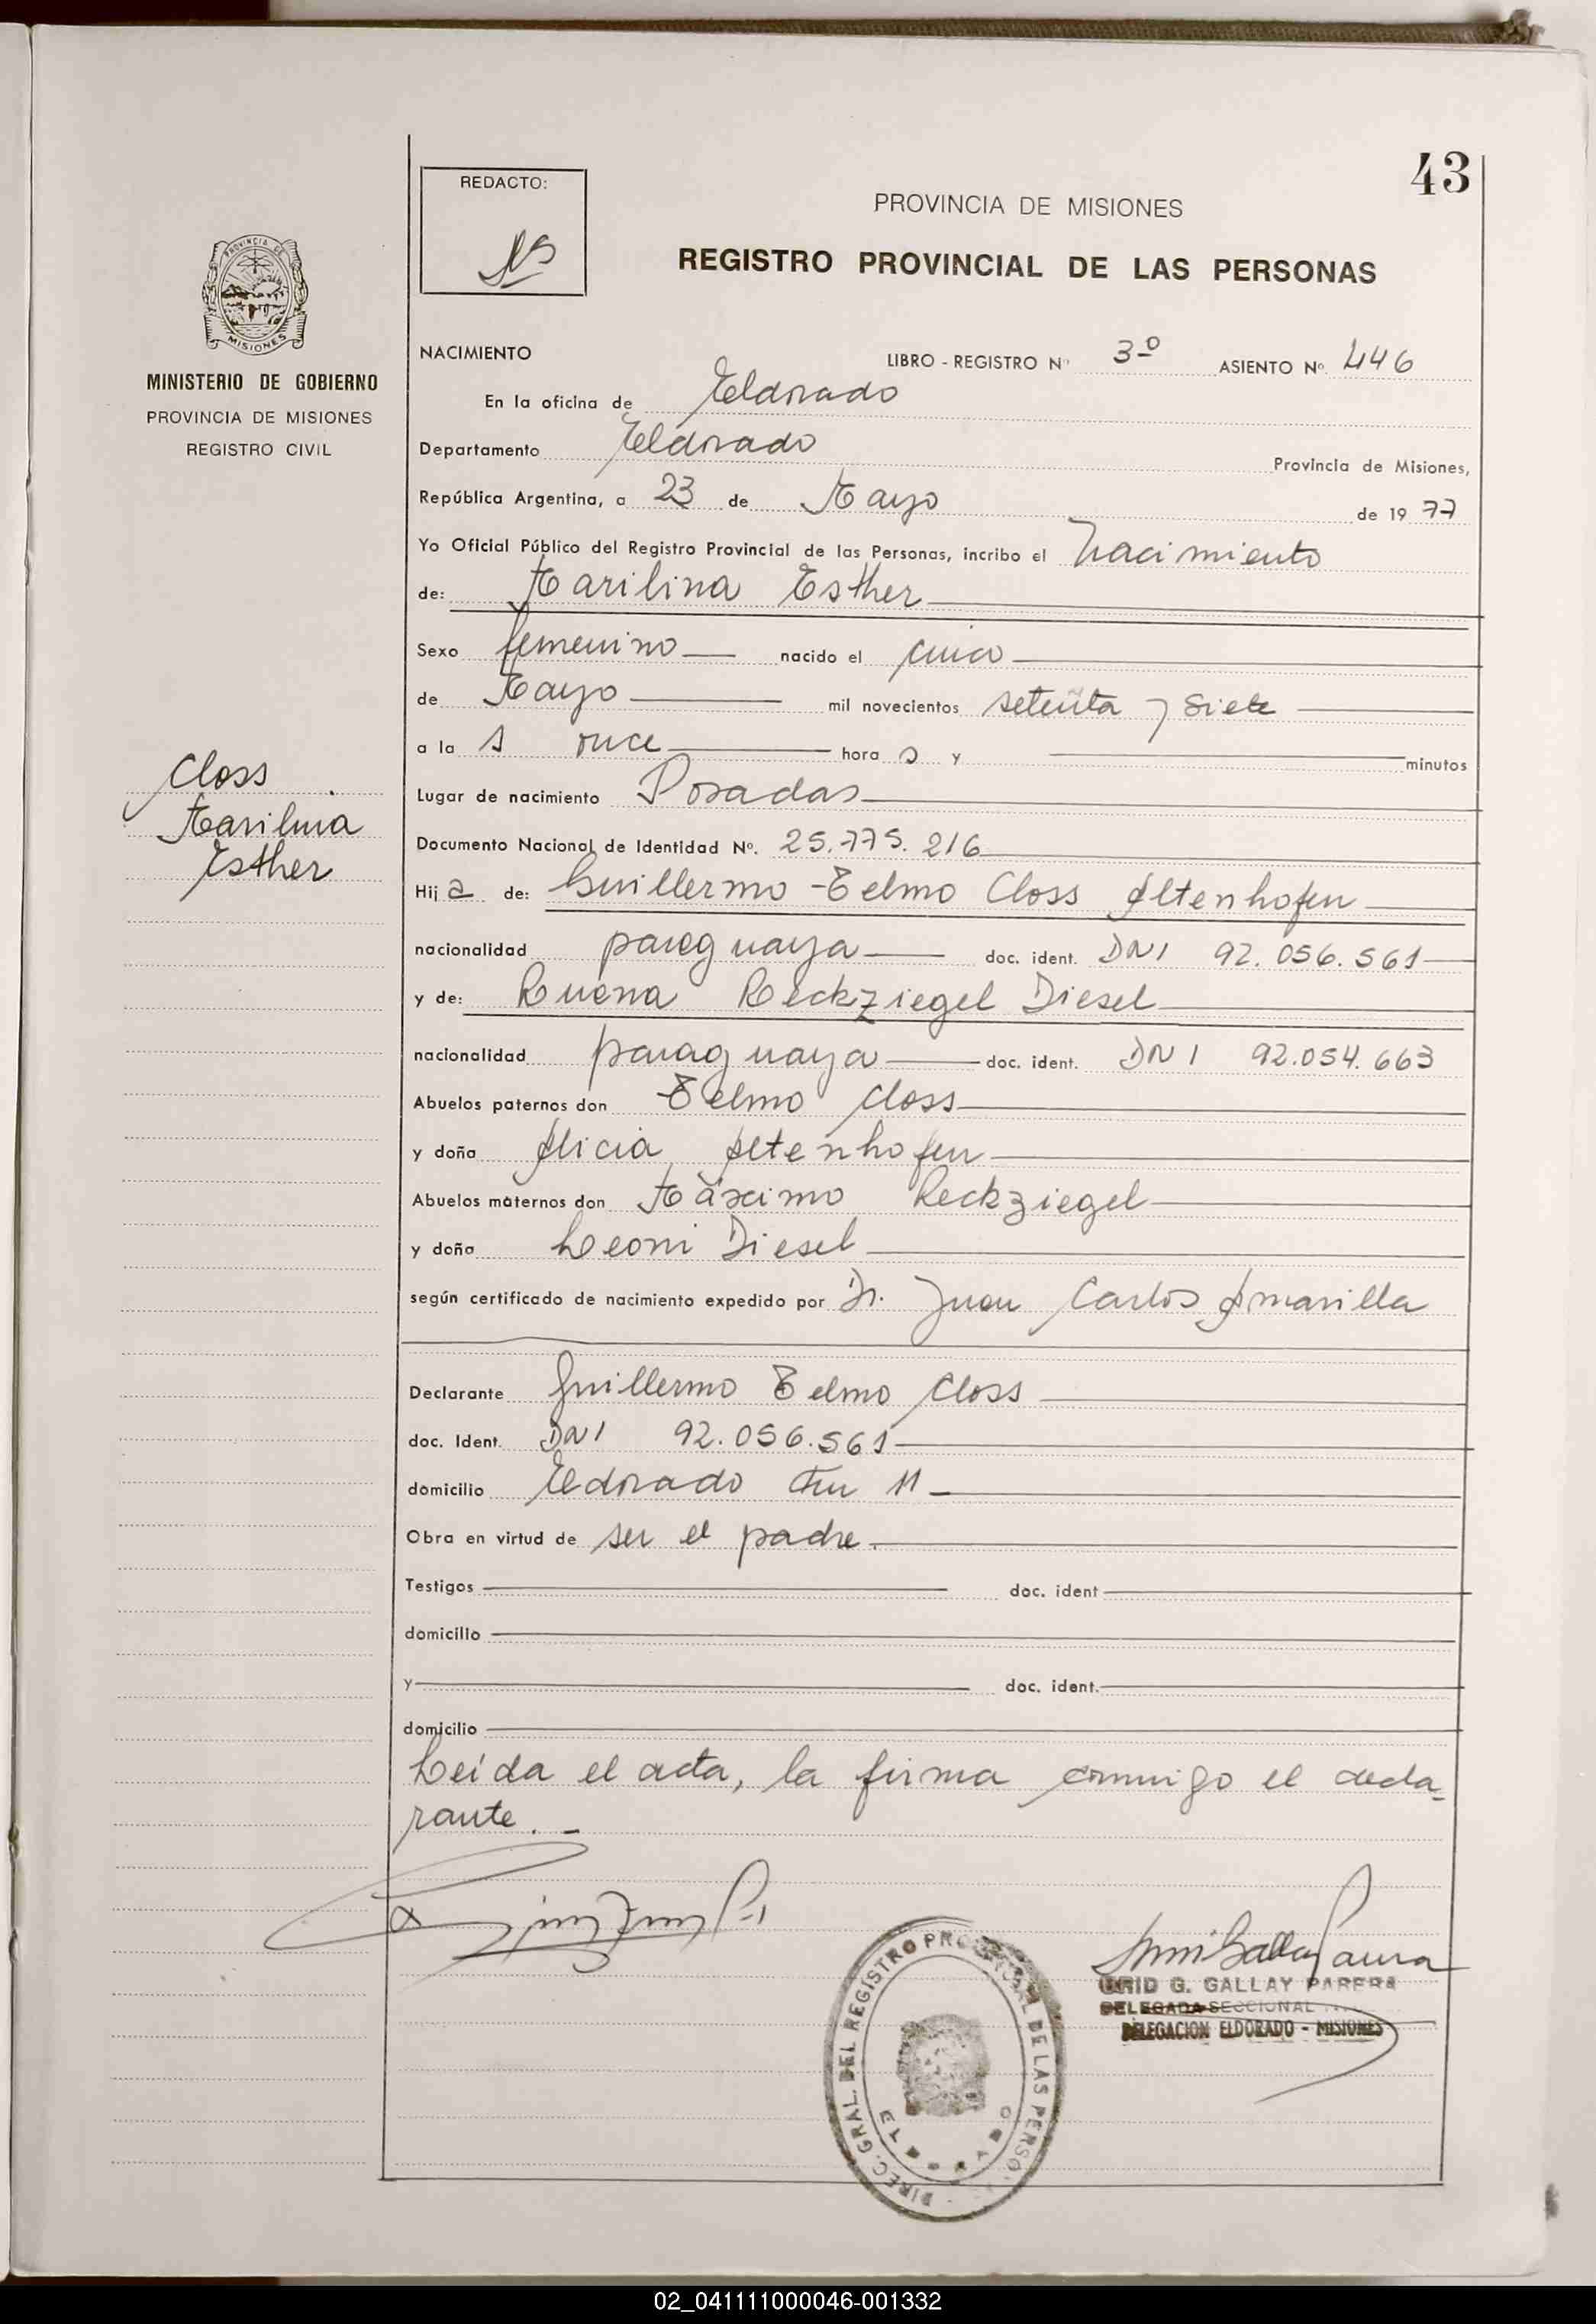 43
REDACTO:
PROVINCIA DE MISIONES
REGISTRO PROVINCIAL DE LAS PERSONAS
PROVINCIA DE
MISIONES
MINISTERIO DE GOBIERNO
PROVINCIA DE MISIONES
REGISTRO CIVIL
NACIMIENTO LIBRO - REGISTRO Nº 3º ASIENTO Nº 446
En la oficina de Eldorado
Departamento Eldorado Provincia de Misiones,
República Argentina, a 23 de Mayo de 1977
Yo Oficial Público del Registro Provincial de las Personas, incribo el Nacimiento
de: Marilina Esther
Sexo femenino nacido el cinco
de Mayo mil novecientos setenta y siete
a la s once hora s y minutos
Closs
Marilina
Esther
Lugar de nacimiento Posadas
Documento Nacional de Identidad Nº. 25.775.216
Hija de: Guillermo Telmo Closs Altenhofen
nacionalidad paraguaya doc. ident. DNI 92.056.561
y de: Reckziegel Diesel
nacionalidad paraguaya doc. ident. DNI 92.054.663
Abuelos paternos don Telmo Closs
y doña Alicia Altenhofen
Abuelos maternos don Máximo Reckziegel
y doña Leoni Diesel
según certificado de nacimiento expedido por Dr. Juan Carlos Amarilla
Declarante Guillermo Telmo Closs
doc. Ident. DNI 92.056.561
domicilio Eldorado Km 11
Obra en virtud de ser el padre.
Testigos doc. ident
domicilio
y doc. ident.
domicilio
Leída el acta, la firma conmigo el decla-
rante.-
DIREC. GRAL. DEL REGISTRO PROVINCIAL DE LAS PERSO
ELDORADO
G. GALLAY PARERA
DELEGADA SECCIONAL
DELEGACION ELDORADO - MISIONES
02_041111000046-001332